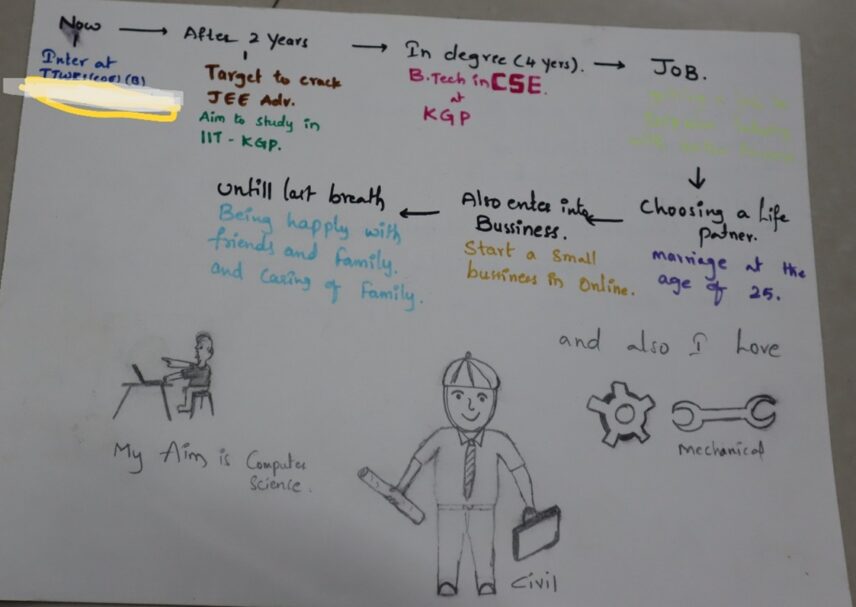 Now → After 2 Years → In degree (4 yers). → JOB.
Inter at
Target to crack
JEE Adv.
Aim to study in
IIT - KGP.
B.Tech in CSE.
at
KGP
Choosing a Life
patner.
marriage at the
age of 25.
Also enter into
Bussiness.
Start a small
bussiness in Online.
untill last breath
Being happly with
friends and family.
and Caring of Family.
My Aim is Computer
Science.
Civil
and also I Love
Mechanical